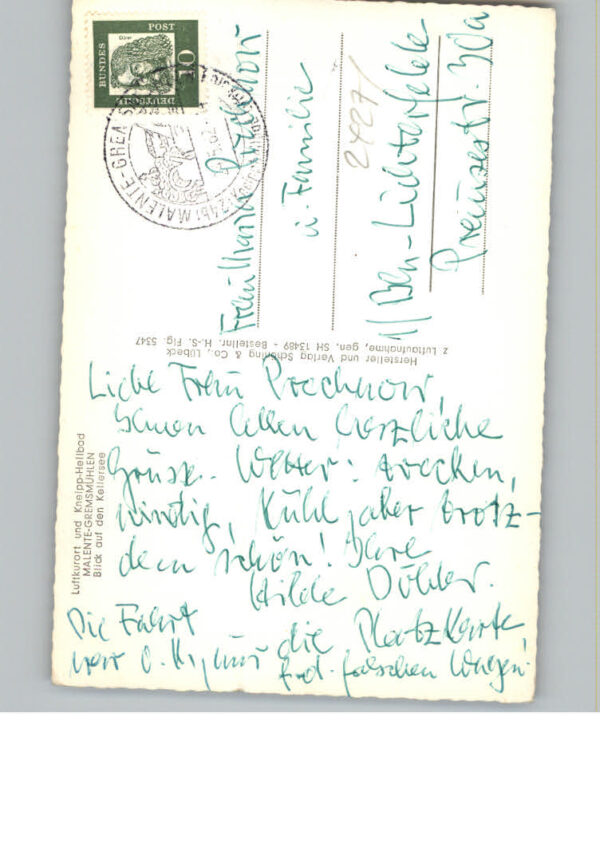 Liebe Frau Prochnow,
Ihnen Allen herzliche
Grüsse. Wetter: trocken,
windig, kühl, aber trotz-
dem schön! Ihre
Hilde Döhler.
Die Fahrt
war o. K., nur die Platzkarte
f. d. falschen Wagen.
Frau Prochnow
u. Familie
1/ Bln-Lichterfelde
30a
2427/
Hersteller und Verlag Schöning & Co., Lübeck
z Luftaufnahme, gen. SH 13489 - Bestellnr. H.-S. Fig. 5347
Luftkurort und Kneipp-Heilbad
MALENTE-GREMSMÜHLEN
Blick auf den Kellersee
DEUTSCHE
BUNDES
POST
10
MALENTE-GREMS